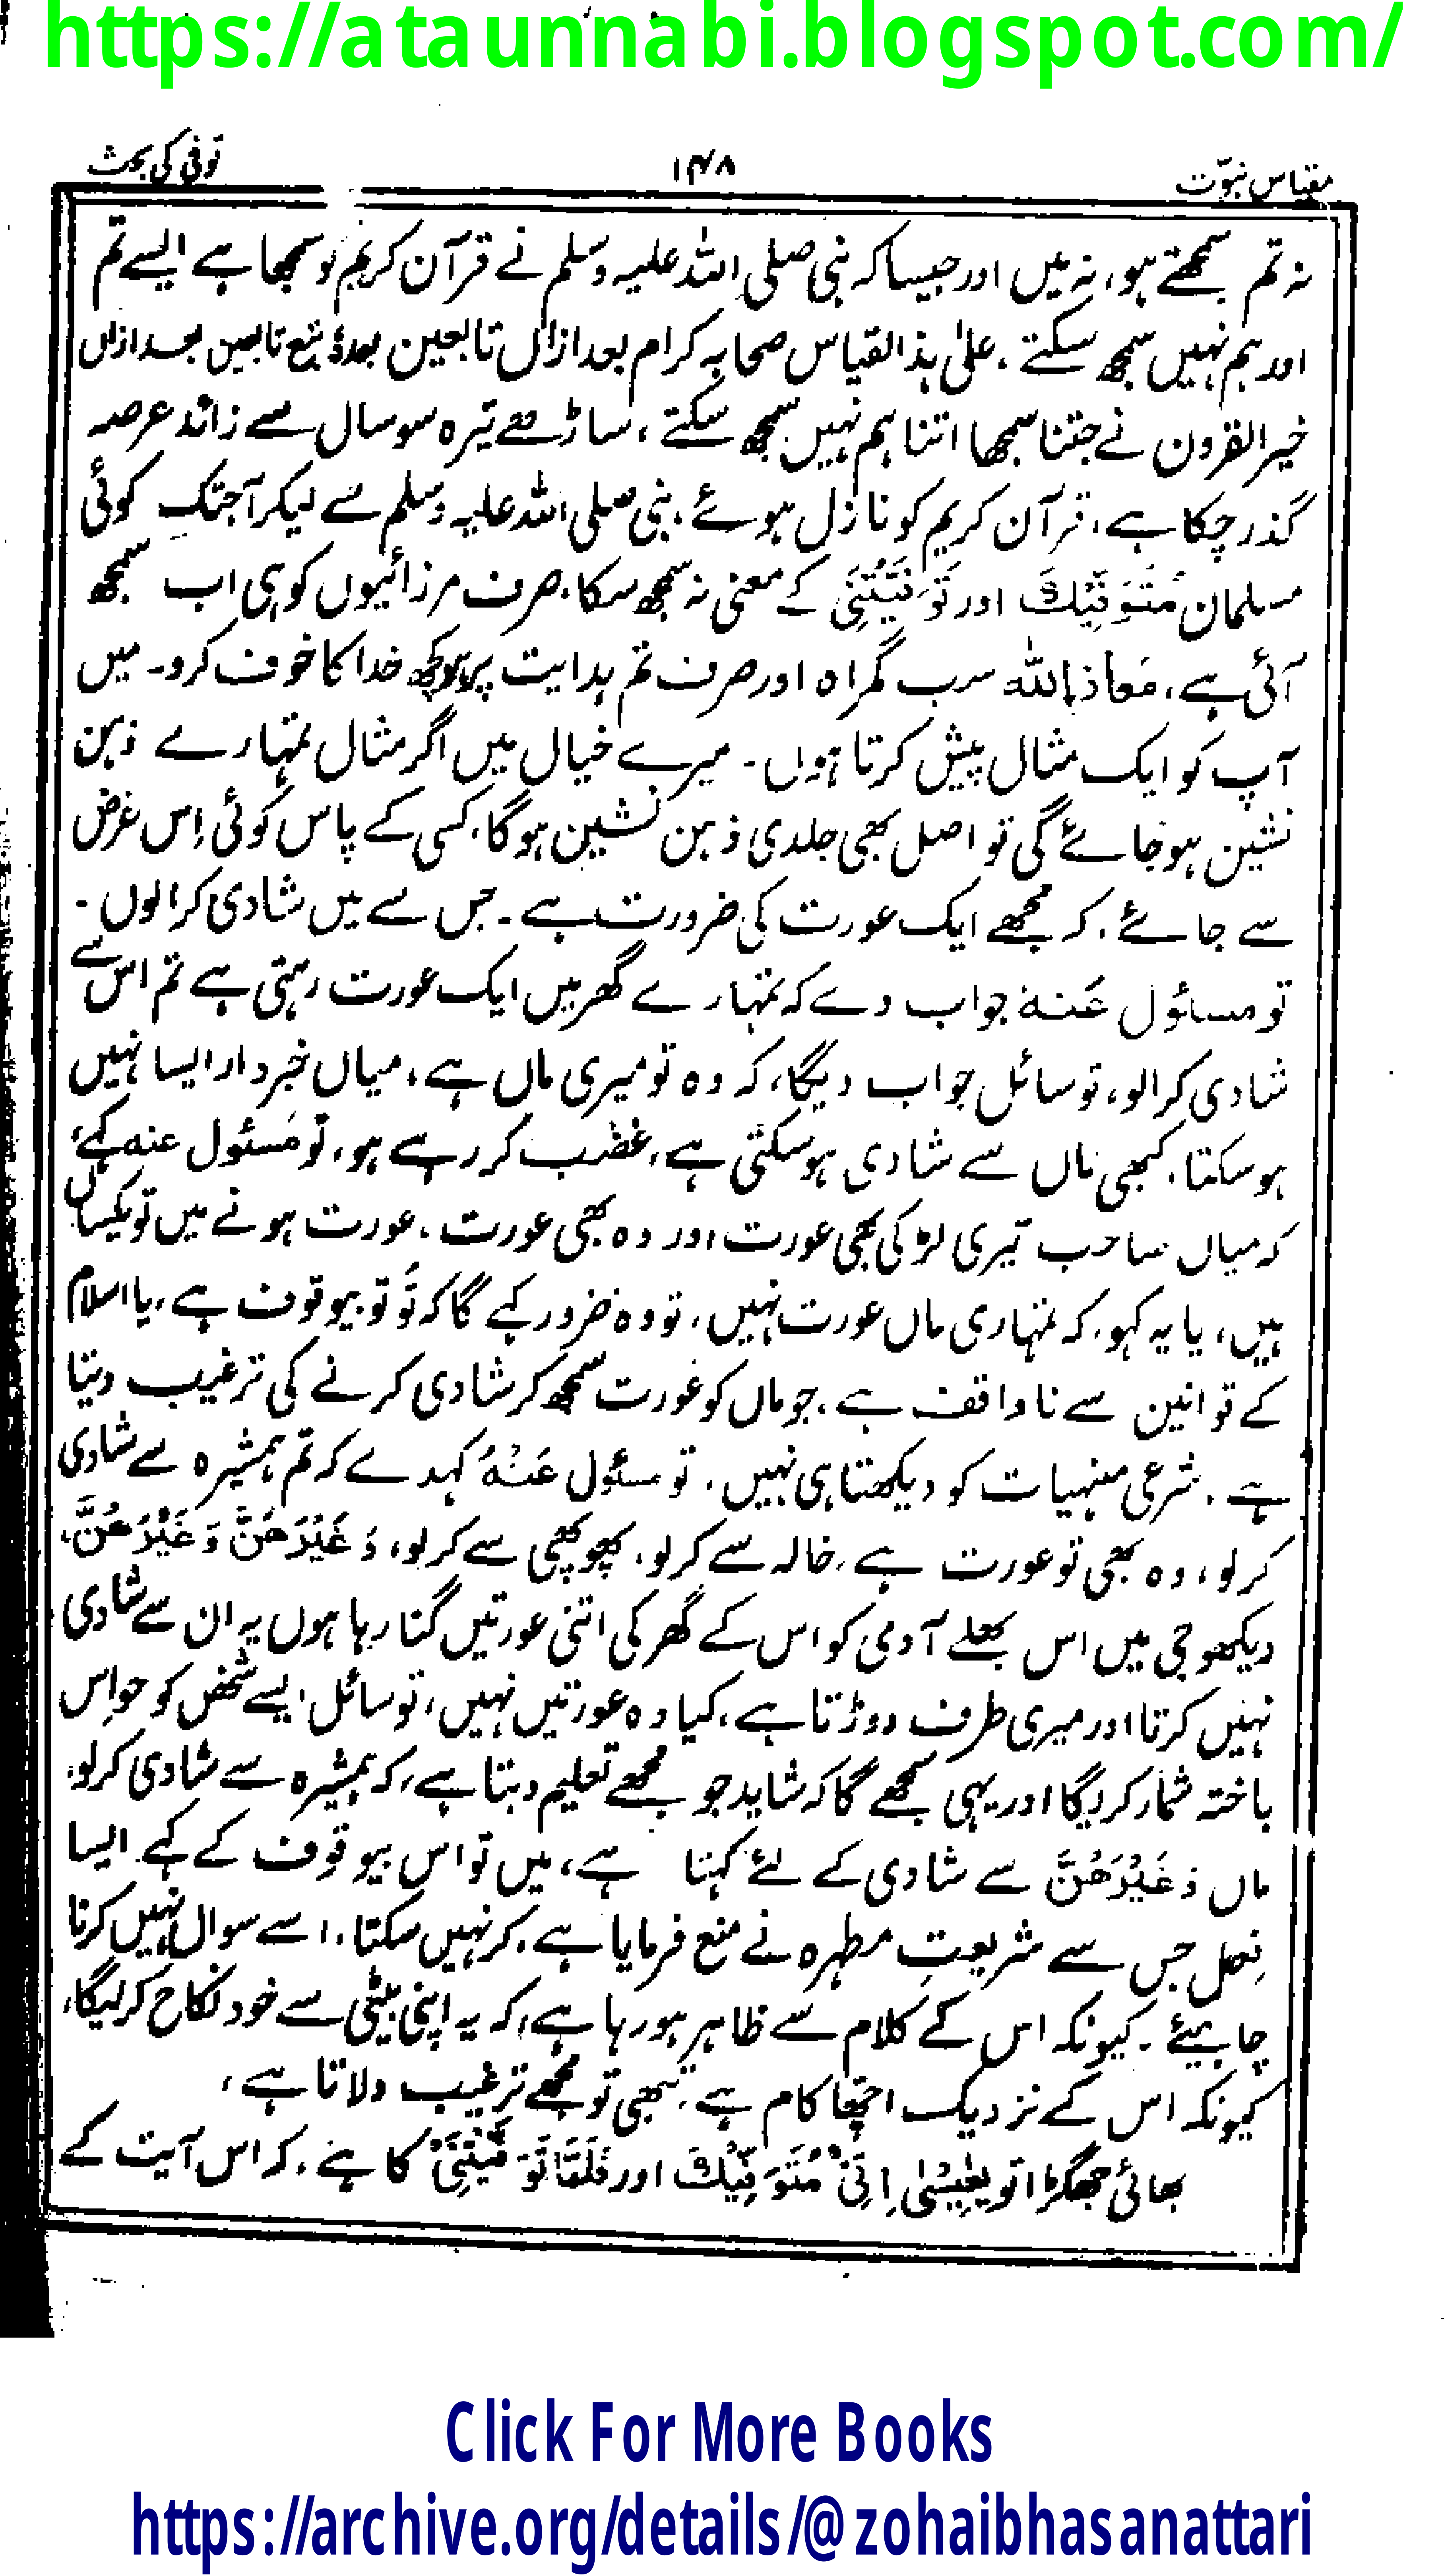 https://ataunnabi.blogspot.com/
مقیاس نبوّت ۱۴۸ توفی کی بحث
نہ تم سمجھتے ہو، نہ میں اور جیسا کہ نبی صلی اللہ علیہ وسلم نے قرآن کریم کو سمجھا ہے ایسے تم
اور ہم نہیں سمجھ سکتے ، علیٰ ہذا القیاس صحابہ کرام بعد ازاں تابعین بعدہٗ تبع تابعین بعد ازاں
خیر القرون نے جتنا سمجھا اتنا ہم نہیں سمجھ سکتے ، ساڑھے تیرہ سو سال سے زائد عرصہ
گذر چکا ہے ، قرآن کریم کو نازل ہوئے ، نبی صلی اللہ علیہ وسلم سے لیکر آجتک کوئی
مسلمان مُتَوَفِّيْكَ اور تَوَفَّيْتَنِي کے معنی نہ سمجھ سکا ، صرف مرزائیوں کو ہی اب سمجھ
آئی ہے ، مَعاذ اللہ سب گمراہ اور صرف تم ہدایت پر ہو کچھ خدا کا خوف کرو۔ میں
آپ کو ایک مثال پیش کرتا ہوں ۔ میرے خیال میں اگر مثال تمہارے ذہن
نشین ہو جائے گی تو اصل بھی جلدی ذہن نشین ہوگا ، کسی کے پاس کوئی اِس غرض
سے جائے ، کہ مجھے ایک عورت کی ضرورت ہے ۔ جس سے میں شادی کرالوں ۔
تو مسائول عَنہ جواب دے کہ تمہارے گھر میں ایک عورت رہتی ہے تم اس سے
شادی کرالو ، تو سائل جواب دیگا ، کہ وہ تو میری ماں ہے ، میاں خبردار ایسا نہیں
ہو سکتا ، کبھی ماں سے شادی ہو سکتی ہے ، غضب کر رہے ہو ، تو مَسئول عنہ کہے ،
کہ میاں صاحب تیری لڑکی بھی عورت اور وہ بھی عورت ، عورت ہونے میں تو یکساں
ہیں ، یا یہ کہو ، کہ تمہاری ماں عورت نہیں ، تو وہ ضرور کہے گا کہ تُو تو بیوقوف ہے ، یا اسلام
کے قوانین سے ناواقف ہے ، جو ماں کو عورت سمجھ کر شادی کرنے کی ترغیب دیتا
ہے ۔ شرعی منہیات کو دیکھتا ہی نہیں ، تو مسئول عَنْهُ کہدے کہ تم ہمشیرہ سے شادی
کر لو ، وہ بھی تو عورت ہے ، خالہ سے کر لو ، پھوپھی سے کر لو ، وَ غَيْرَ هُنَّ وَ غَيْرَ هُنَّ ،
دیکھو جی میں اس بھلے آدمی کو اس کے گھر کی اتنی عورتیں گنا رہا ہوں یہ ان سے شادی
نہیں کرتا اور میری طرف دوڑتا ہے ، کیا وہ عورتیں نہیں ، تو سائل ایسے شخص کو حواس
باختہ شمار کریگا اور یہی سمجھے گا کہ شاید جو مجھے تعلیم دیتا ہے ، کہ ہمشیرہ سے شادی کرلو ،
ماں وَ غَيْرُ هُنَّ سے شادی کے لئے کہتا ہے ، میں تو اس بیوقوف کے کہے ایسا
فعل جس سے شریعتِ مطہرہ نے منع فرمایا ہے ، کر نہیں سکتا ، اسے سوال نہیں کرنا
چاہیئے ۔ کیونکہ اس کے کلام سے ظاہر ہو رہا ہے ، کہ یہ اپنی بیٹی سے خود نکاح کرلیگا ،
کیونکہ اس کے نزدیک اچھا کام ہے ، تبھی تو مجھے ترغیب دلاتا ہے ،
بھائی جھگڑا تو يٰعِيْسٰى اِنِّيْ مُتَوَفِّيْكَ اور فَلَمَّا تَوَفَّيْتَنِيْ کا ہے ، کہ اس آیت کے
Click For More Books
https://archive.org/details/@zohaibhasanattari